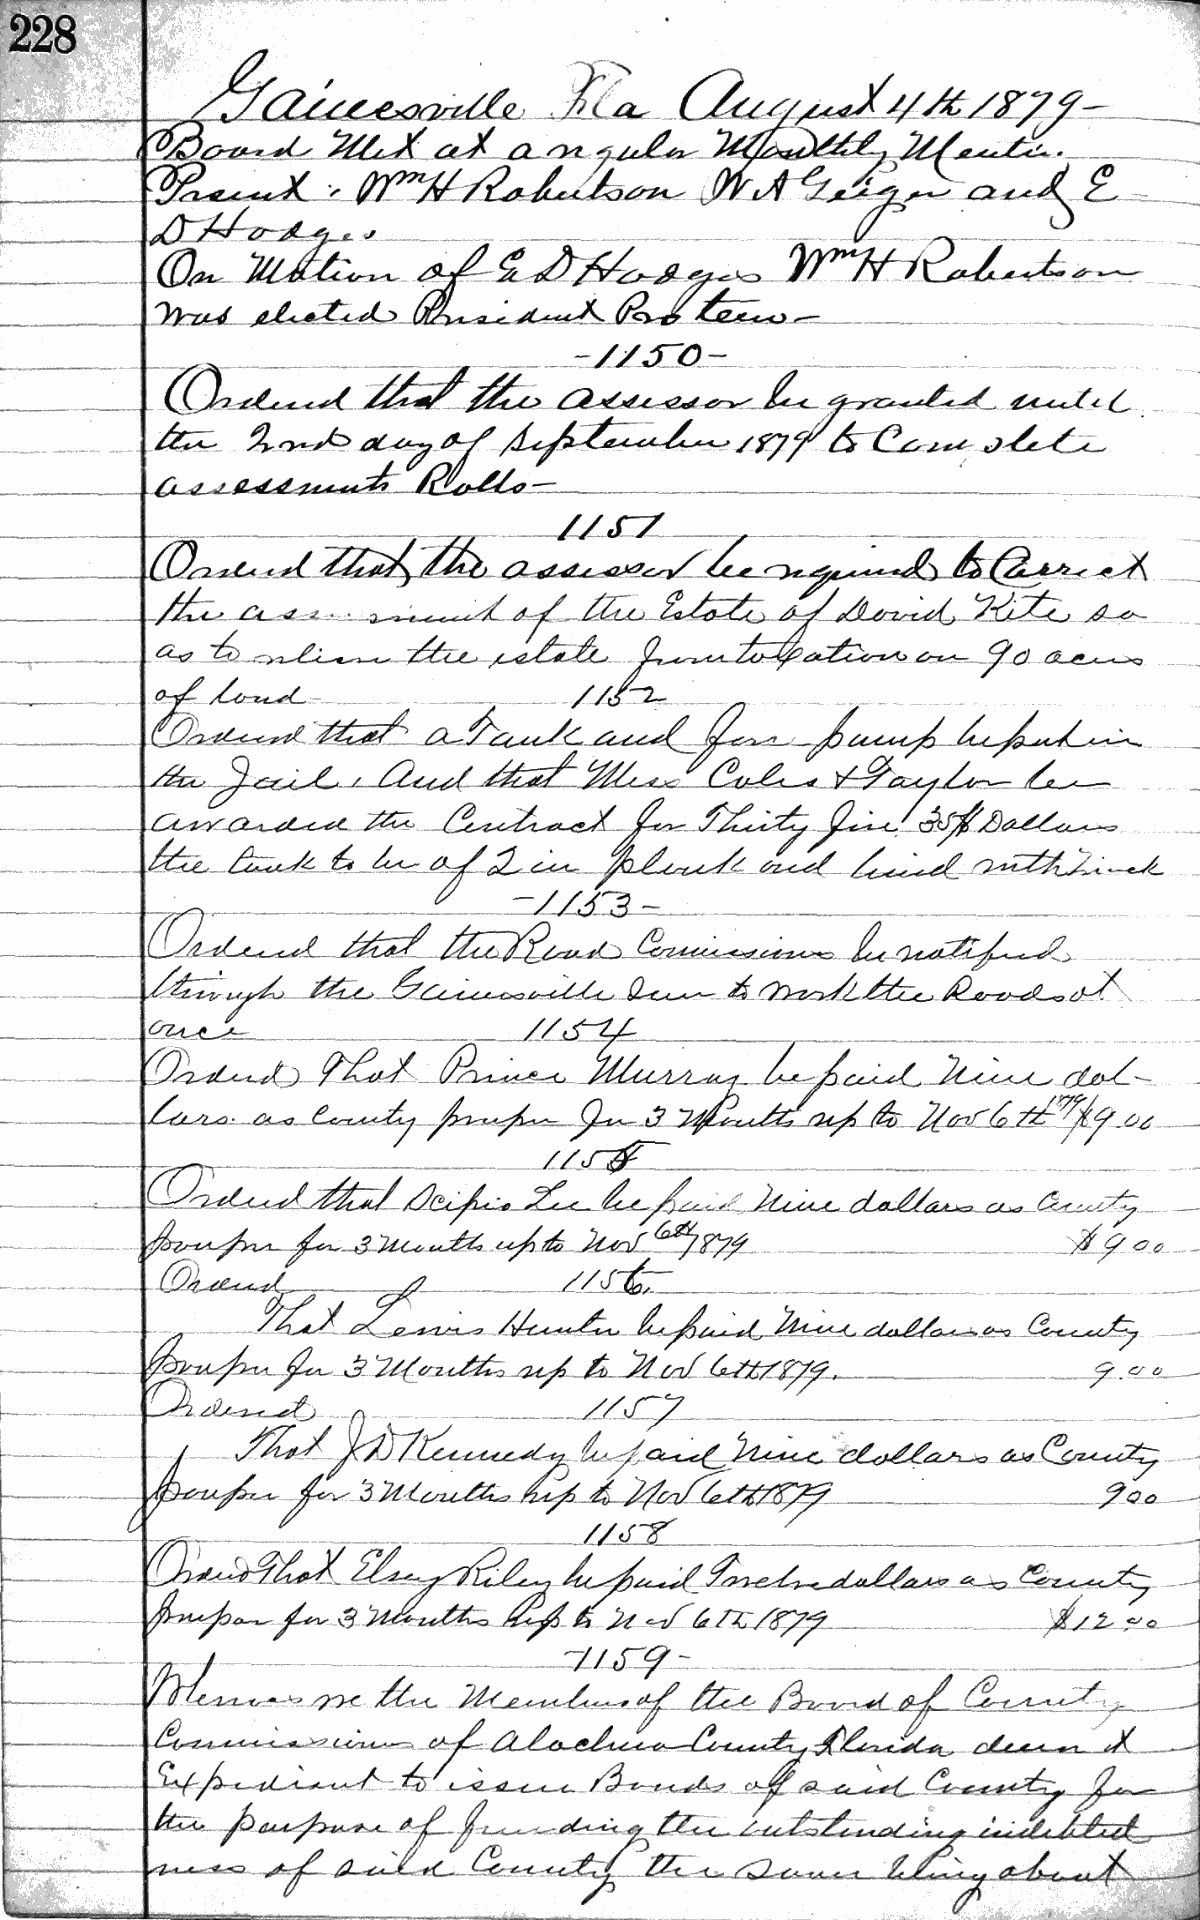 228
Gainesville Fla August 4th 1879-
Board Met at a regular Monthly Meetin.
Present: Wm H Robertson W A Geiger and E
D Hodges
On Motion of E D Hodges Wm H Robertson
was elected President Protem-
-1150-
Ordered that the assessor be granted until
the 2nd day of September 1879 to Complete
assessments Rolls-
1151
Ordered that the assessor be required to Correct
the assessment of the Estate of David Kite so
as to relieve the estate from taxation on 90 acres
of land 1152
Ordered that a Tank and For pump be put in
the Jail, And that Mess Coles & Taylor be
awarded the Contract for Thirty five 35$ Dollars
the tank to be of 2 in plank and lined with Zinck
-1153-
Ordered that the Road Comissioners be notified
through the Gainesville Sun to work the Roads at
once 1154
Ordered That Prince Murray be paid Nine dol-
lars. as County pauper for 3 Months up to Nov 6th 1879 $9.00
1155
Ordered that Scipio Lee be paid Nine dollars as County
pauper for 3 Months up to Nov 6th 1879 $9.00
Ordered 1156.
That Lewis Hunter be paid Nine dollars as County
pauper for 3 Months up to Nov 6th 1879. 9.00
Ordered 1157
That J D Kennedy be paid Nine dollars as County
pauper for 3 Months up to Nov 6th 1879 9 00
1158
Ordered That Elsey Riley be paid Twelve dollars as County
pauper for 3 Months up to Nov 6th 1879 $12.00
-1159-
Whereas we the Members of the Board of County
Commissioners of Alachua County Florida deem it
Expediant to issue Bonds of said County for
the purpose of funding the outstanding indebted
ness of said County the same being about